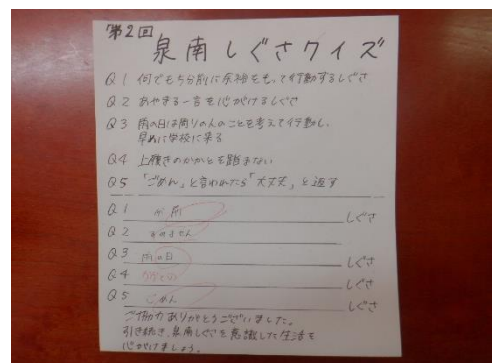 第2回
泉南しぐさクイズ
Q1 何でも5分前に余裕をもって行動するしぐさ
Q2 あやまる一言を心がけるしぐさ
Q3 雨の日は周りの人のことを考えて行動し、
早めに学校に来る
Q4 上履きのかかとを踏まない
Q5 「ごめん」と言われたら「大丈夫」と返す
Q.1 しぐさ
Q2 すみません
Q3 雨の日 しぐさ
Q4 しぐさ
Q5 ごめん しぐさ
ご協力ありがとうございました。
引き続き、泉南しぐさを意識した生活を
心がけましょう。